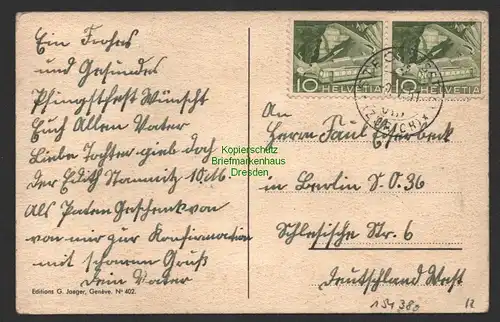 Ein Frohes
und Gesundes
Pfingstfest Wünscht
Euch Allen Vater
Liebe Tochter gieb doch
der Edith Stamnitz 10.M.
als Paten Geschenk von
von mir zur Konfirmation
mit schönem Gruß
dein Vater
Editions G. Jaeger, Genève. Nº 402.
10 HELVETIA
10 HELVETIA
(ZÜRICH)
An
Herrn Paul
in Berlin S.O.36
Schlesische Str. 6
Deutschland West
154380
Kopierschutz
Briefmarkenhaus
Dresden